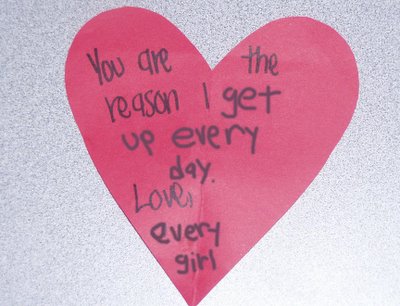 You are the
reason I get
up every
day.
Love,
every
girl